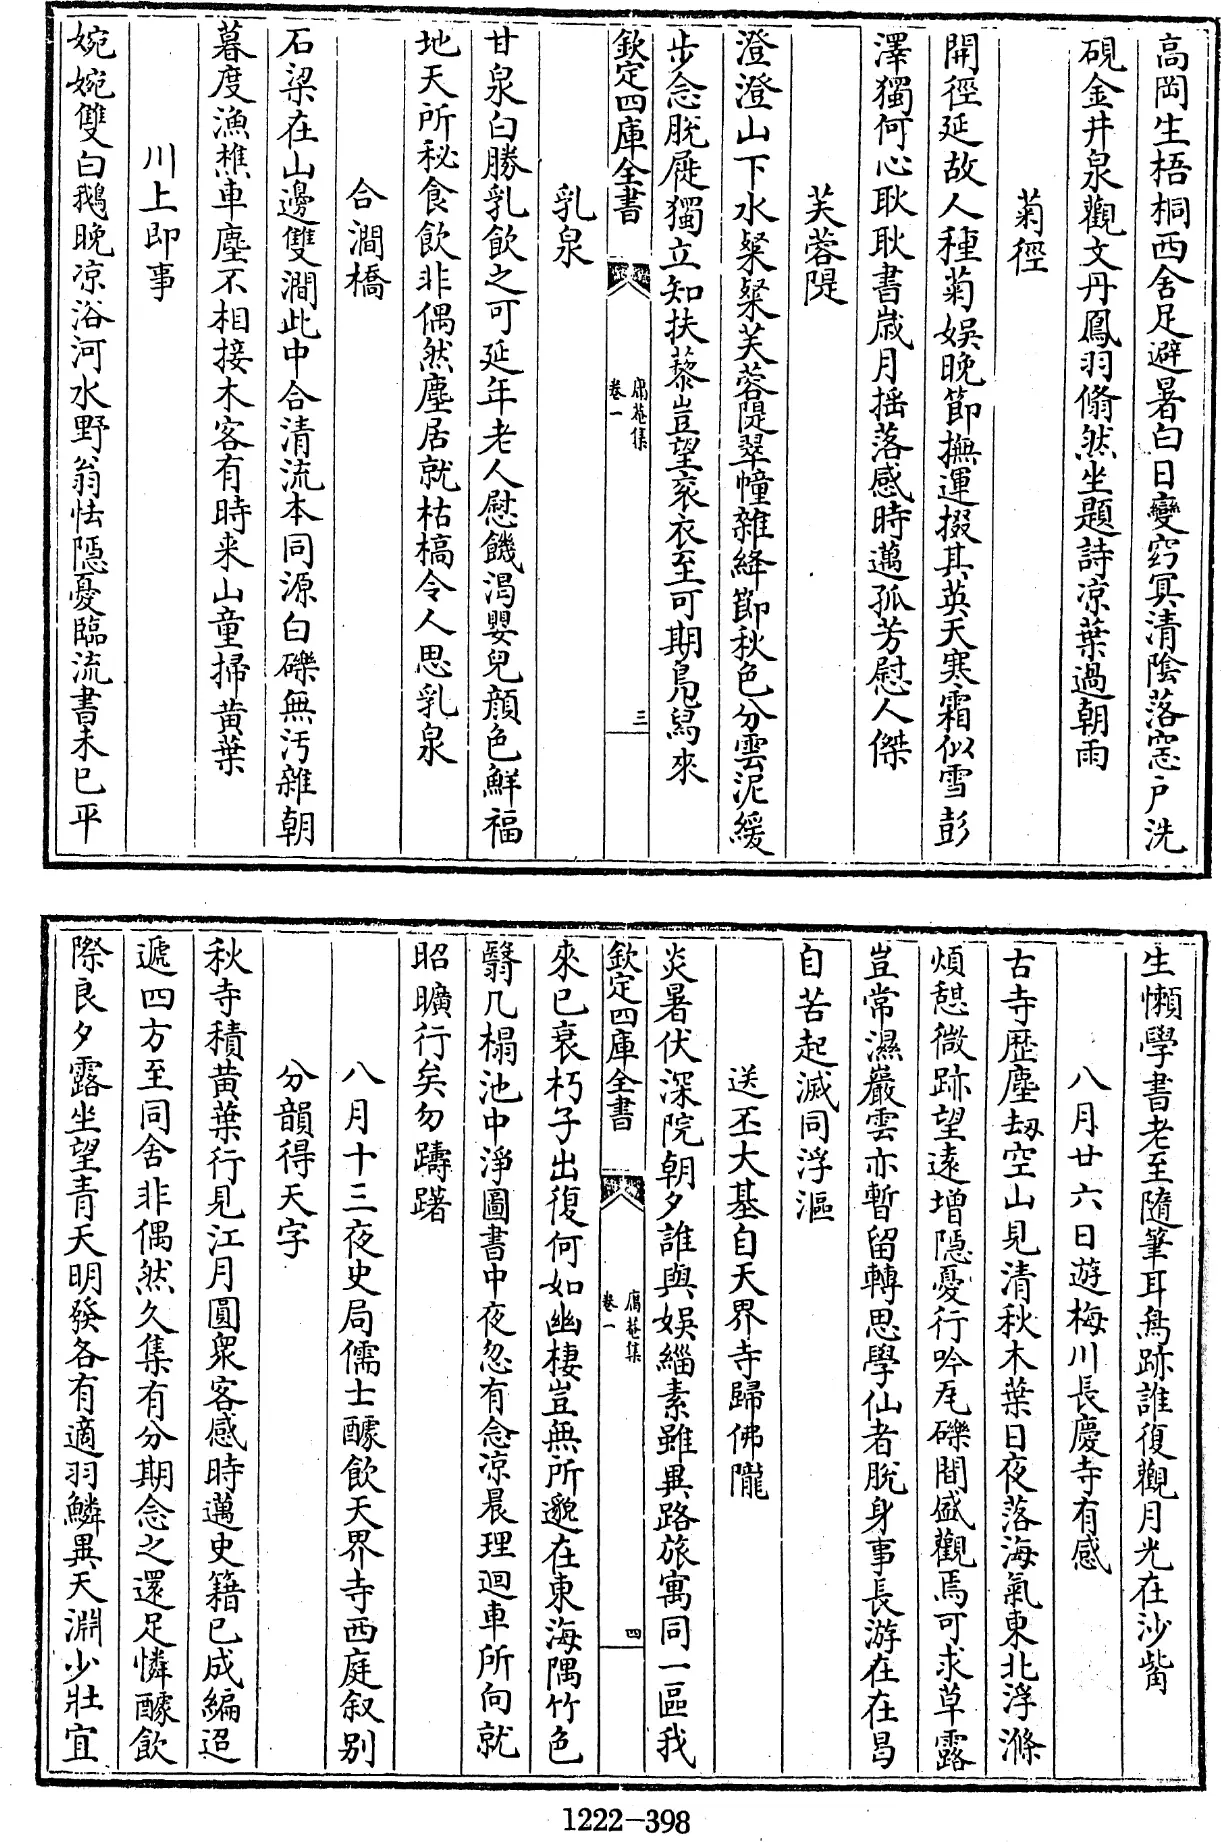 高岡生梧桐西舍足避暑白日變窈冥清陰落窻戸洗
硯金井泉觀文丹鳳羽翛然坐題詩凉葉過朝雨
菊徑
開徑延故人種菊娱晚節撫運掇其英天寒霜似雪彭
澤獨何心耿耿書嵗月揺落感時邁孤芳慰人傑
芙蓉隄
澄澄山下水粲粲芙蓉隄翠幢雜絳節秋色分雲泥緩
步念脱屣獨立知扶藜豈望衮衣至可期鳬舄來
欽定四庫全書
卷一
庸菴集
三
乳泉
甘泉白勝乳飲之可延年老人慰饑渇嬰兒顔色鮮福
地天所秘食飲非偶然塵居就枯槁令人思乳泉
合澗橋
石梁在山邊雙澗此中合清流本同源白礫無汚雜朝
暮度漁樵車塵不相接木客有時来山童掃黄葉
川上即事
婉婉雙白鵝晚凉浴河水野翁怯隠憂臨流書未已平
生懶學書老至隨筆耳鳥跡誰復觀月光在沙觜
八月廿六日遊梅川長慶寺有感
古寺歴塵刼空山見清秋木葉日夜落海氣東北浮滌
煩憇微跡望遠增隠憂行吟瓦礫間盛觀焉可求草露
豈常濕巖雲亦暫留轉思學仙者脱身事長游在在昌
自苦起滅同浮漚
送丕大基自天界寺歸佛隴
炎暑伏深院朝夕誰與娱緇素雖異路旅寓同一區我
欽定四庫全書
卷一
庸菴集
四
來已衰朽子出復何如幽棲豈無所邈在東海隅竹色
翳几榻池中淨圖書中夜忽有念凉晨理迴車所向就
昭曠行矣勿躊躇
八月十三夜史局儒士醵飲天界寺西庭叙别
分韻得天字
秋寺積黄葉行見江月圓衆客感時邁史籍已成編迢
遞四方至同舍非偶然久集有分期念之還足憐醵飲
際良夕露坐望青天明發各有適羽鱗異天淵少壯宜
1222-398